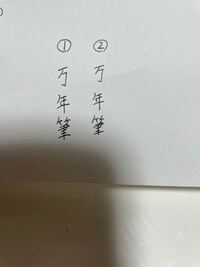 ①万年筆
②万年筆